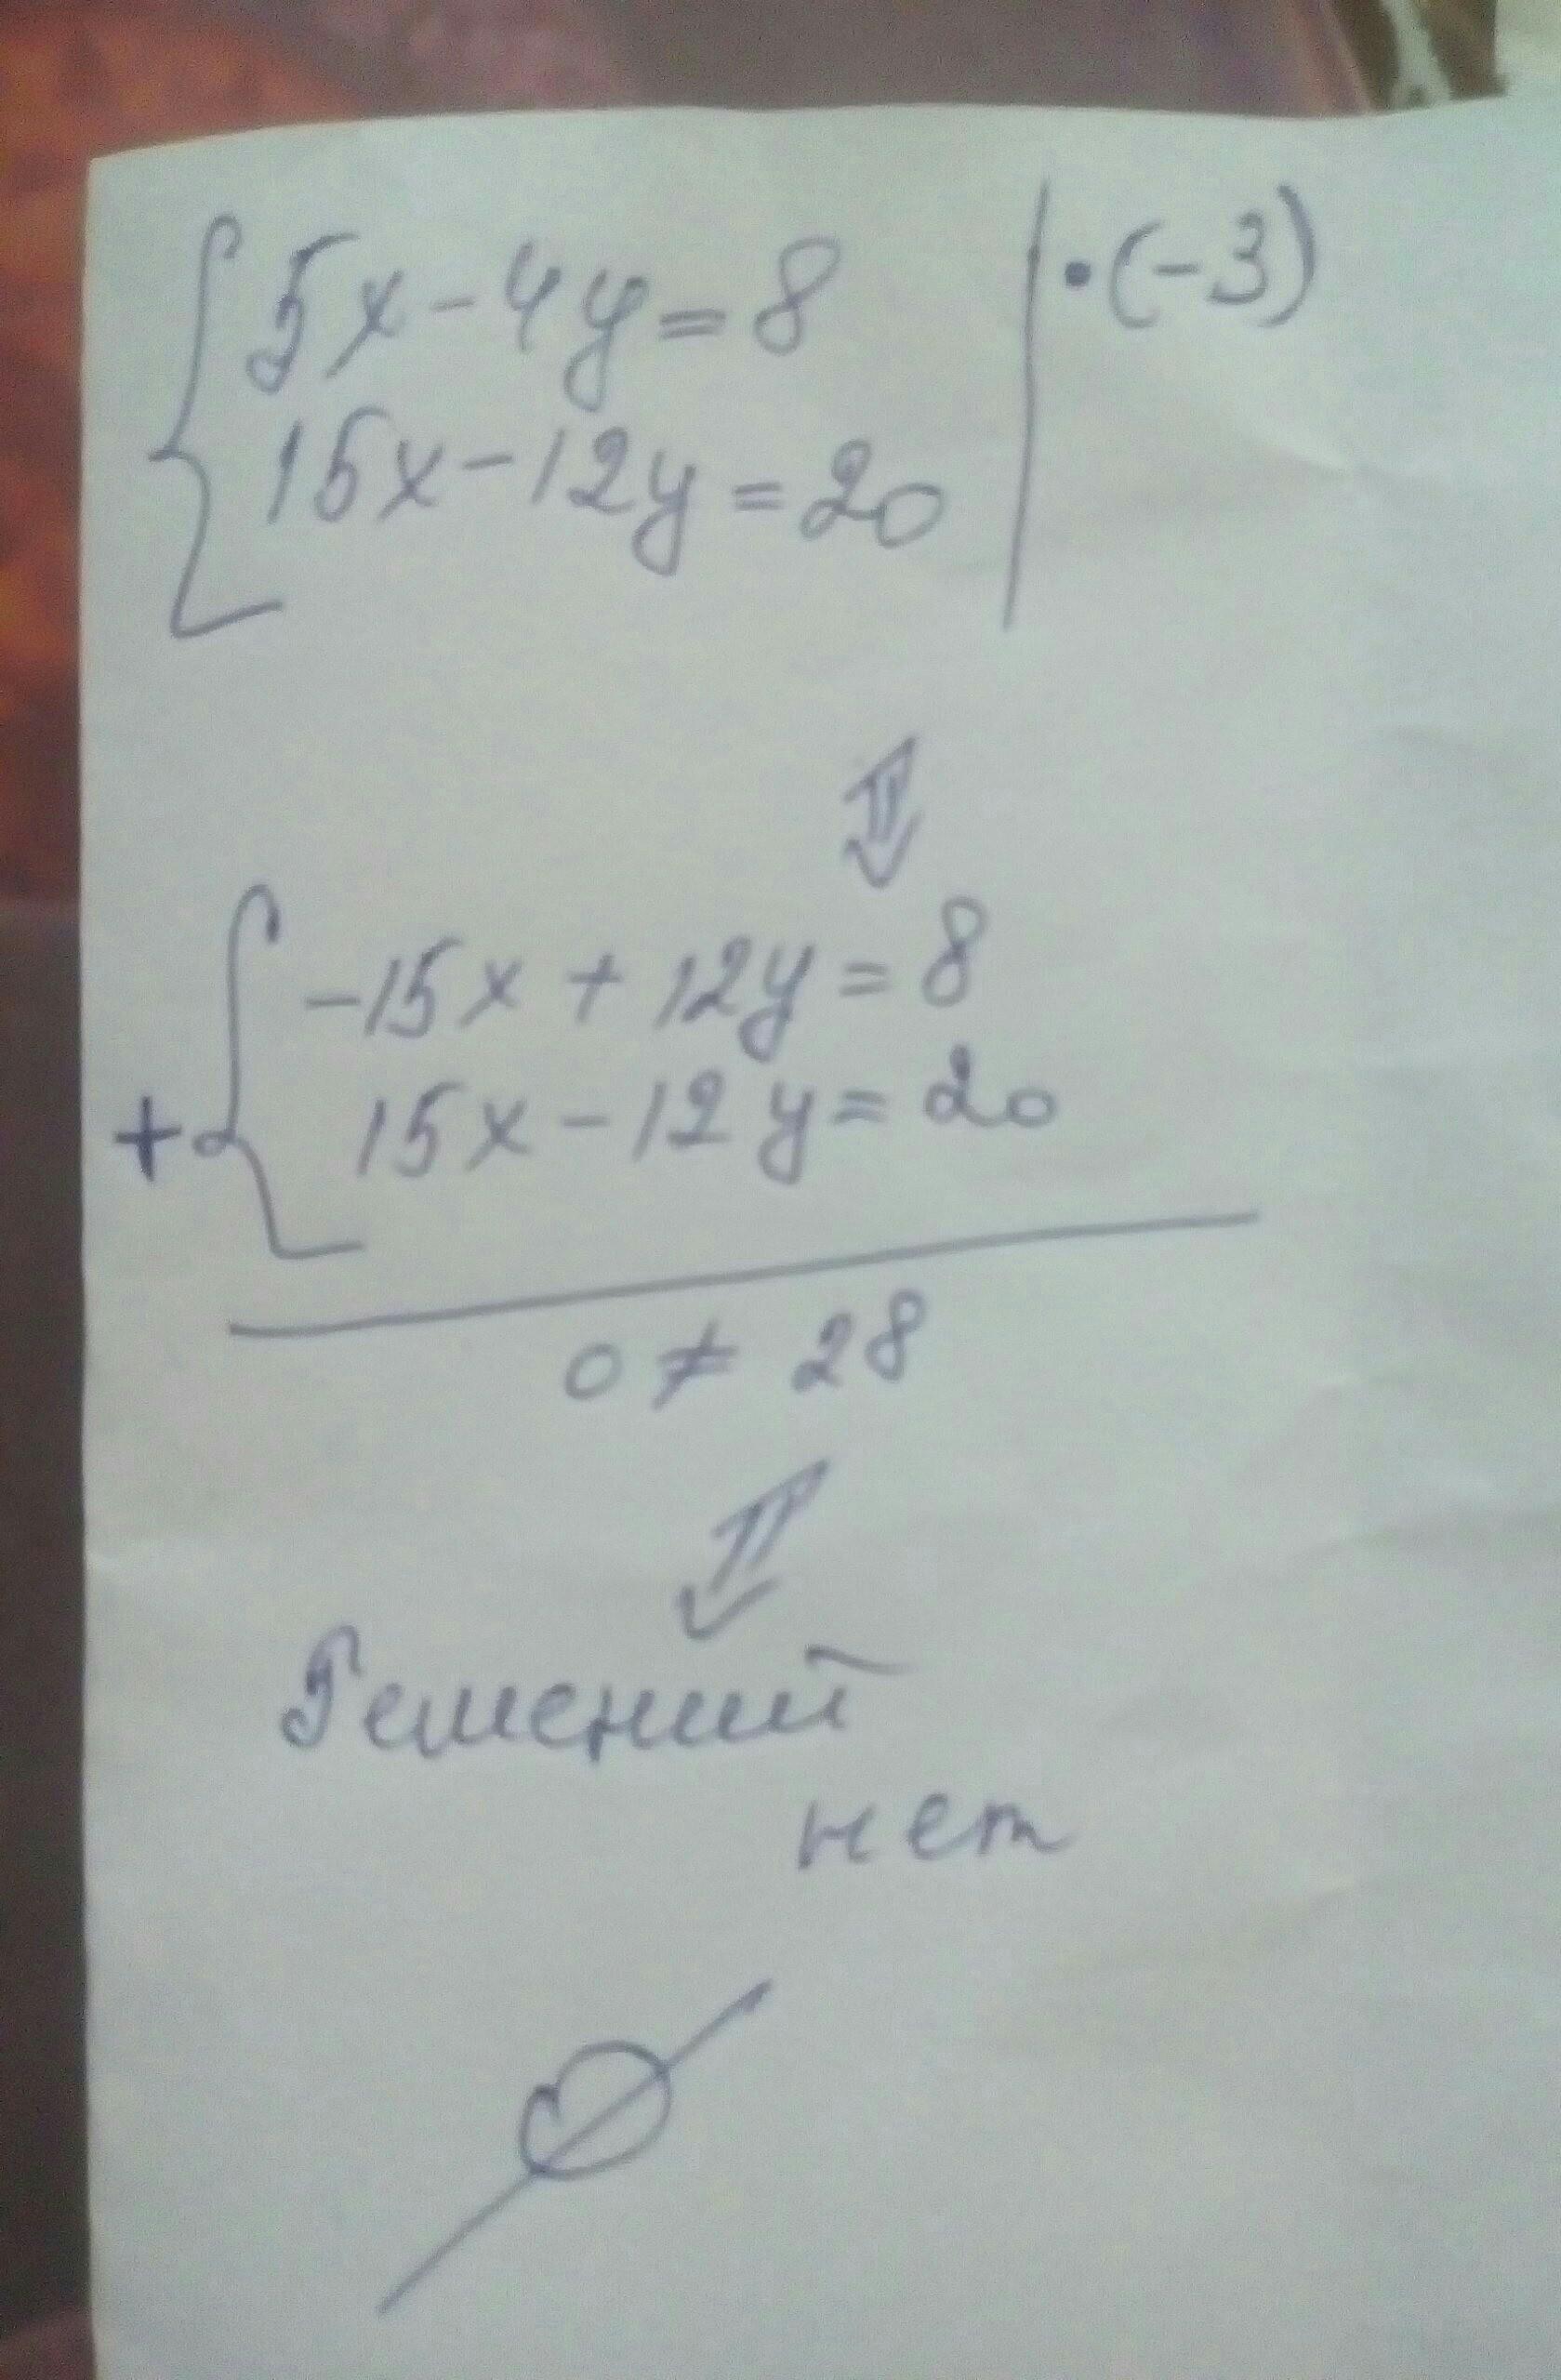 5x-4y=8 | •(-3)
15x-12y=20
⇓
-15x+12y=8
+ 15x-12y=20
0≠28
⇓
Решений
нет
∅